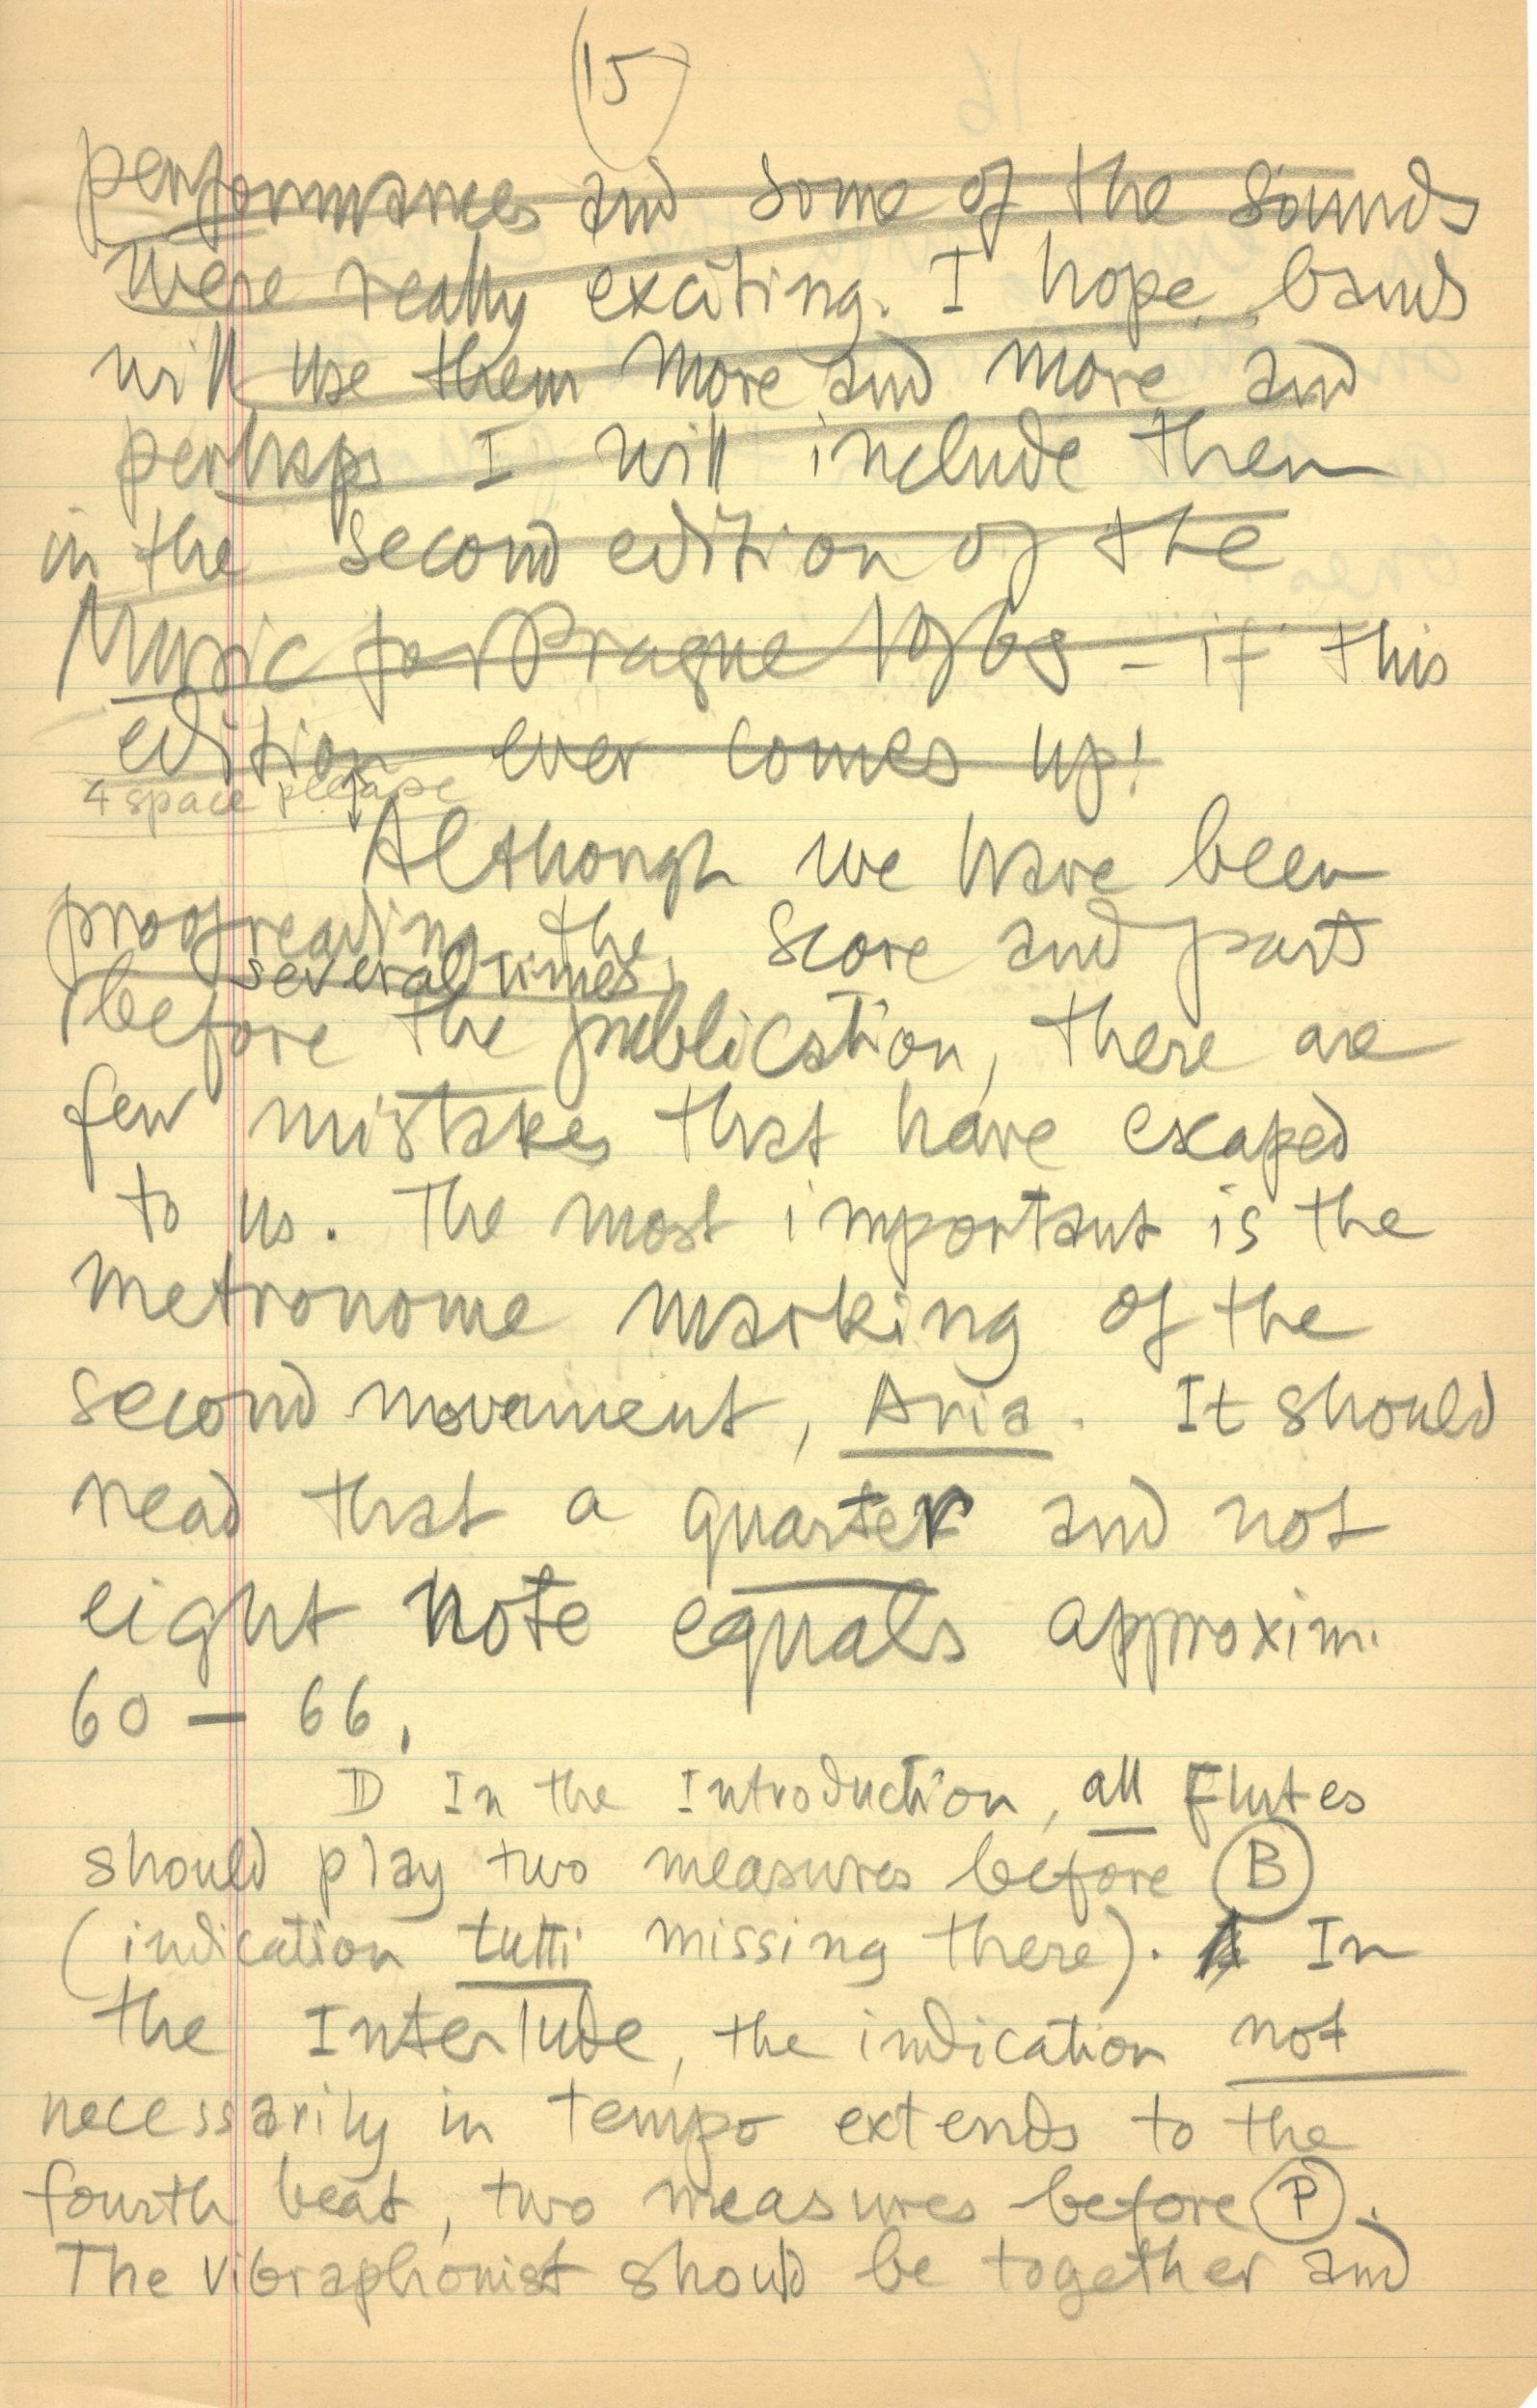 15
performances and some of the sounds
were really exciting. I hope, bands
will use them more and more and
perhaps I will include them
in the second edition of the
Music for Prague 1968 – if this
edition ever comes up!
4 space please
Although we have been
proofreading the score and parts
several times,
before the publication, there are
few mistakes that have escaped
to us. The most important is the
metronome marking of the
second movement, Aria. It should
read that a quarter and not
eight note equals approxim.
60 – 66.
In the Introduction, all Flutes
should play two measures before B
(indication tutti missing there). In
the Interlude, the indication not
necessarily in tempo extends to the
fourth beat, two measures before P.
The vibraphonist should be together and